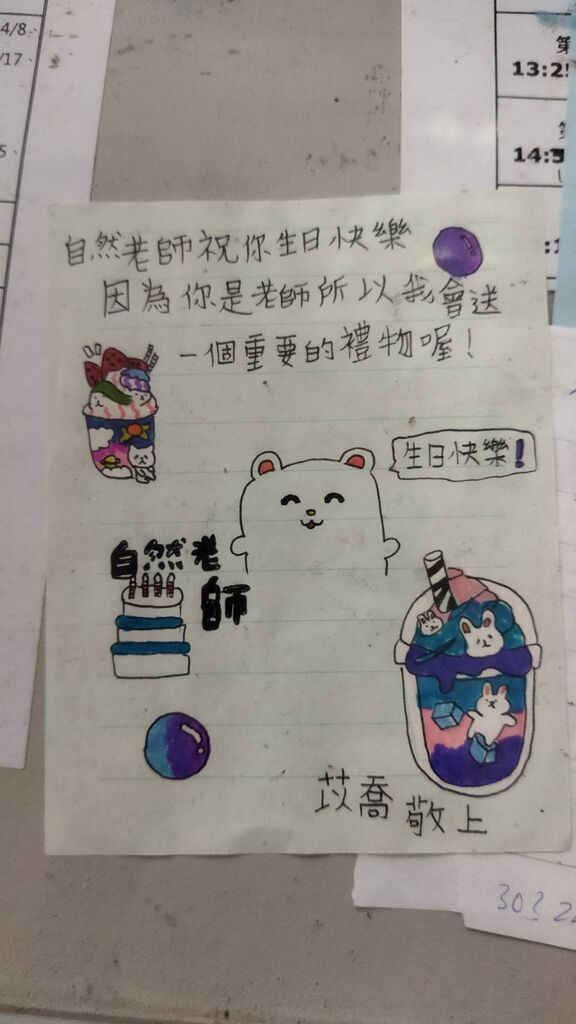 4/8、
/17、
5、
第
13:2
14:3
自然老師祝你生日快樂
因為你是老師所以我會送
一個重要的禮物喔！
生日快樂！
自然老
師
苡喬敬上
303 2